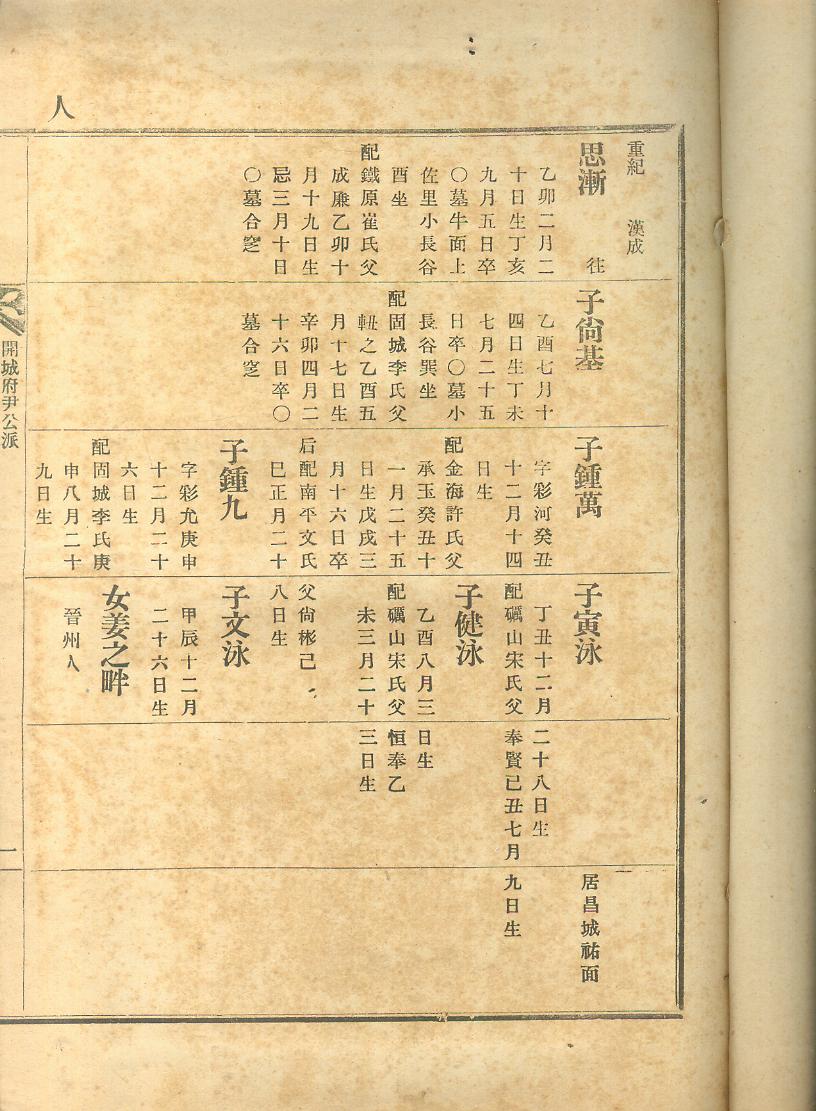 人
重紀 漢成
思漸 往
乙卯二月二
十日生丁亥
九月五日卒
〇墓牛面上
佐里小長谷
酉坐
配鐵原崔氏父
成廉乙卯十
月十九日生
忌三月十日
〇墓合窆
子尙基
乙酉七月十
四日生丁未
七月二十五
日卒〇墓小
長谷巽坐
配固城李氏父
之乙酉五
月十七日生
辛卯四月二
十六日卒〇
墓合窆
子鍾萬
字彩河癸丑
十二月十四
日生
配金海許氏父
承玉癸丑十
一月二十五
日生戊戌三
月十六日卒
后配南平文氏
巳正月二十
子鍾九
字彩允庚申
十二月二十
六日生
配固城李氏庚
申八月二十
九日生
子寅泳
丁丑十二月
配礪山宋氏父
子健泳
乙酉八月三
配礪山宋氏父
未三月二十
父尙彬己
八日生
子文泳
甲辰十二月
二十六日生
女姜之畔
晉州人
二十八日生
奉賢己丑七月
日生
恒奉乙
三日生
居昌城祐面
九日生
開城府尹公派
一